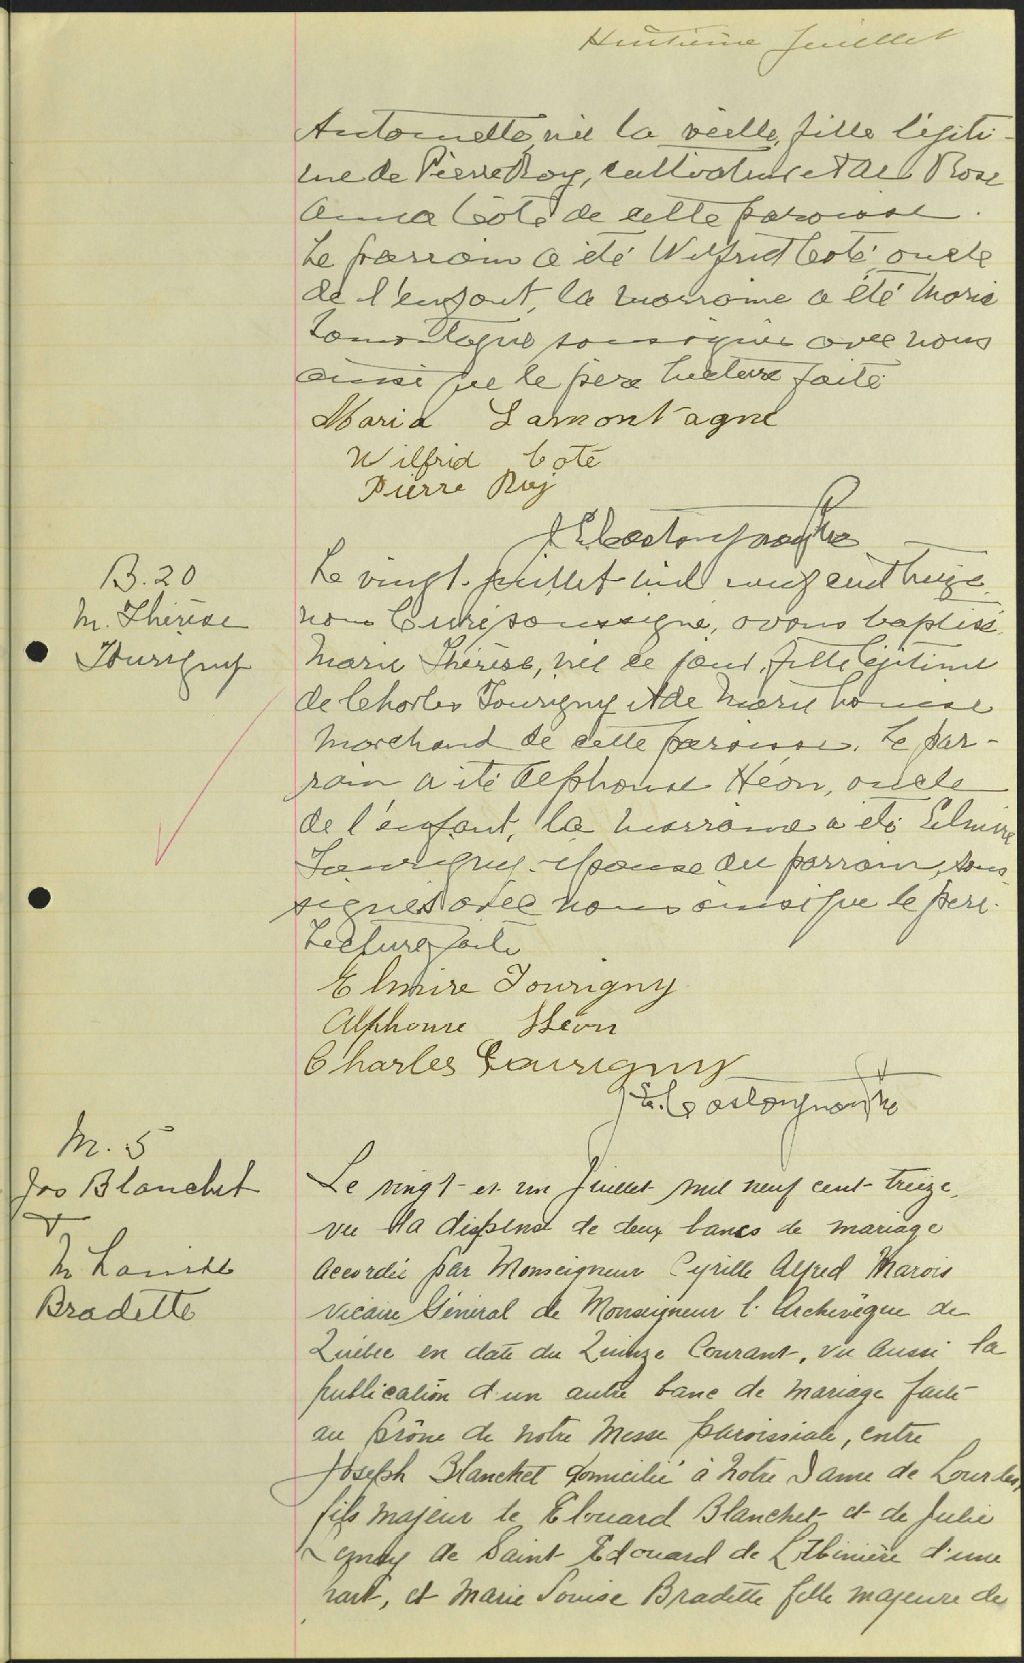 Huitième feuillet
Antoinette, née la veille, fille légiti-
me de Pierre Roy, cultivateur et de Rose
Anna Coté de cette paroisse.
Le parrain a été Wilfrid Coté oncle
de l'enfant, la marraine a été Maria
Lamontagne soussignés avec nous
ainsi que le père Lecture faite
Maria Lamontagne
Wilfrid Coté
Pierre Roy
J. E. Castonguay Ptre
B. 20
M. Thérèse
Tourigny
Le vingt juillet mil neuf cent treize,
nous Curé soussigné, avons baptisé
Marie Thérèse, née ce jour, fille légitime
de Charles Tourigny et de Marie Louise
Marchand de cette paroisse. Le par-
rain a été Alphonse Héon, oncle
de l'enfant, la marraine a été Elmire
Tourigny épouse du parrain, sous-
signés avec nous ainsi que le père.
Lecture faite
Elmire Tourigny
Alphonse Héon
Charles Tourigny
J. E. Castonguay Ptre
M. 5
Jos Blanchet
+
M Louise
Bradette
Le vingt et un Juillet mil neuf cent treize,
vu la dispense de deux bancs de mariage
accordée par Monseigneur Cyrille Alfred Marois
Vicaire Général de Monseigneur l'Archevêque de
Québec en date du Quinze Courant, vu aussi la
publication d'un autre banc de mariage faite
au prône de notre Messe paroissiale, entre
Joseph Blanchet domicilié à Notre Dame de Lourdes,
fils majeur de Edouard Blanchet et de Julie
de Saint Edouard de Lotbinière d'une
part, et Marie Louise Bradette fille majeure de